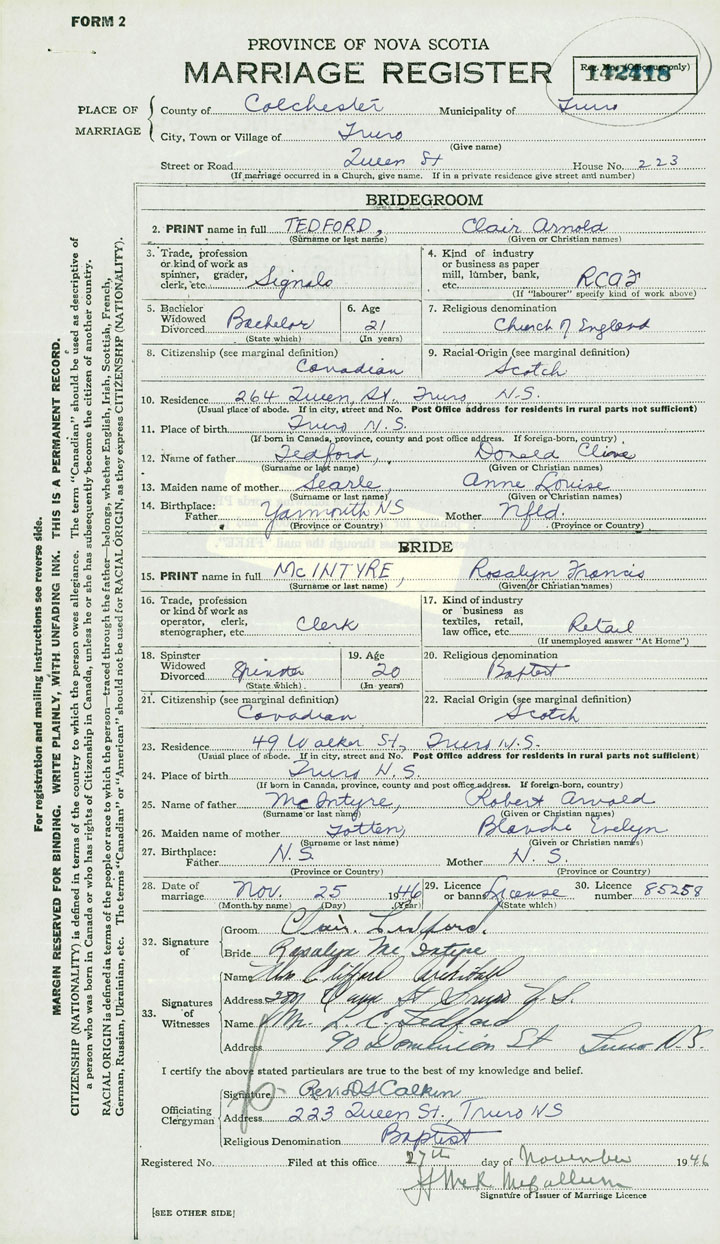 FORM 2
PROVINCE OF NOVA SCOTIA
MARRIAGE REGISTER
Reg. No. (Office use only)
142418
PLACE OF MARRIAGE
County of Colchester Municipality of Truro
City, Town or Village of Truro
(Give name)
Street or Road Queen St House No. 223
(If marriage occurred in a Church, give name. If in a private residence give street and number)
BRIDEGROOM
2. PRINT name in full TEDFORD, Clair Arnold
(Surname or last name) (Given or Christian names)
3. Trade, profession or kind of work as spinner, grader, clerk, etc. Signals
4. Kind of industry or business as paper mill, lumber, bank, etc. RCAF
(If "labourer" specify kind of work above)
5. Bachelor Widowed Divorced Bachelor
(State which)
6. Age 21
(In years)
7. Religious denomination
Church of England
8. Citizenship (see marginal definition)
Canadian
9. Racial Origin (see marginal definition)
Scotch
10. Residence 264 Queen St., Truro N.S.
(Usual place of abode. If in city, street and No. Post Office address for residents in rural parts not sufficient)
11. Place of birth Truro N.S.
(If born in Canada, province, county and post office address. If foreign-born, country)
12. Name of father Tedford, Donald
(Surname or last name) (Given or Christian names)
13. Maiden name of mother Searle, Anne Louise
(Surname or last name) (Given or Christian names)
14. Birthplace:
Father Yarmouth NS Mother Nfld.
(Province or Country) (Province or Country)
BRIDE
15. PRINT name in full McINTYRE, Rosalyn Francis
(Surname or last name) (Given or Christian names)
16. Trade, profession or kind of work as operator, clerk, stenographer, etc. Clerk
17. Kind of industry or business as textiles, retail, law office, etc. Retail
(If unemployed answer "At Home")
18. Spinster Widowed Divorced Spinster
(State which)
19. Age 20
(In years)
20. Religious denomination
Baptist
21. Citizenship (see marginal definition)
Canadian
22. Racial Origin (see marginal definition)
Scotch
23. Residence 49 Walker St., Truro N.S.
(Usual place of abode. If in city, street and No. Post Office address for residents in rural parts not sufficient)
24. Place of birth Truro N.S.
(If born in Canada, province, county and post office address. If foreign-born, country)
25. Name of father McIntyre, Robert Arnold
(Surname or last name) (Given or Christian names)
26. Maiden name of mother Totten, Blanche Evelyn
(Surname or last name) (Given or Christian names)
27. Birthplace:
Father N.S. Mother N.S.
(Province or Country) (Province or Country)
28. Date of marriage Nov. 25 1946
(Month by name) (Day) (Year)
29. Licence or banns License
(State which)
30. Licence number 85258
32. Signature of
Groom Clair Tedford.
Bride Rosalyn McIntyre
33. Signatures of Witnesses
Name Clifford Archibald
Address St Truro N.S.
Name Mr. L. C. Tedford
Address 90 Dominion St Truro N.S.
I certify the above stated particulars are true to the best of my knowledge and belief.
Officiating Clergyman
Signature Rev. D S Calkin
Address 223 Queen St., Truro NS
Religious Denomination Baptist
Registered No. Filed at this office 27th day of November 1946
Signature of Issuer of Marriage Licence
[SEE OTHER SIDE]
For registration and mailing instructions see reverse side.
MARGIN RESERVED FOR BINDING. WRITE PLAINLY, WITH UNFADING INK. THIS IS A PERMANENT RECORD.
CITIZENSHIP (NATIONALITY) is defined in terms of the country to which the person owes allegiance. The term "Canadian" should be used as descriptive of
a person who was born in Canada or who has rights of Citizenship in Canada, unless he or she has subsequently become the citizen of another country.
RACIAL ORIGIN is defined in terms of the people or race to which the person—traced through the father—belongs, whether English, Irish, Scottish, French,
German, Russian, Ukrainian, etc. The terms "Canadian" or "American" should not be used for RACIAL ORIGIN, as they express CITIZENSHIP (NATIONALITY).